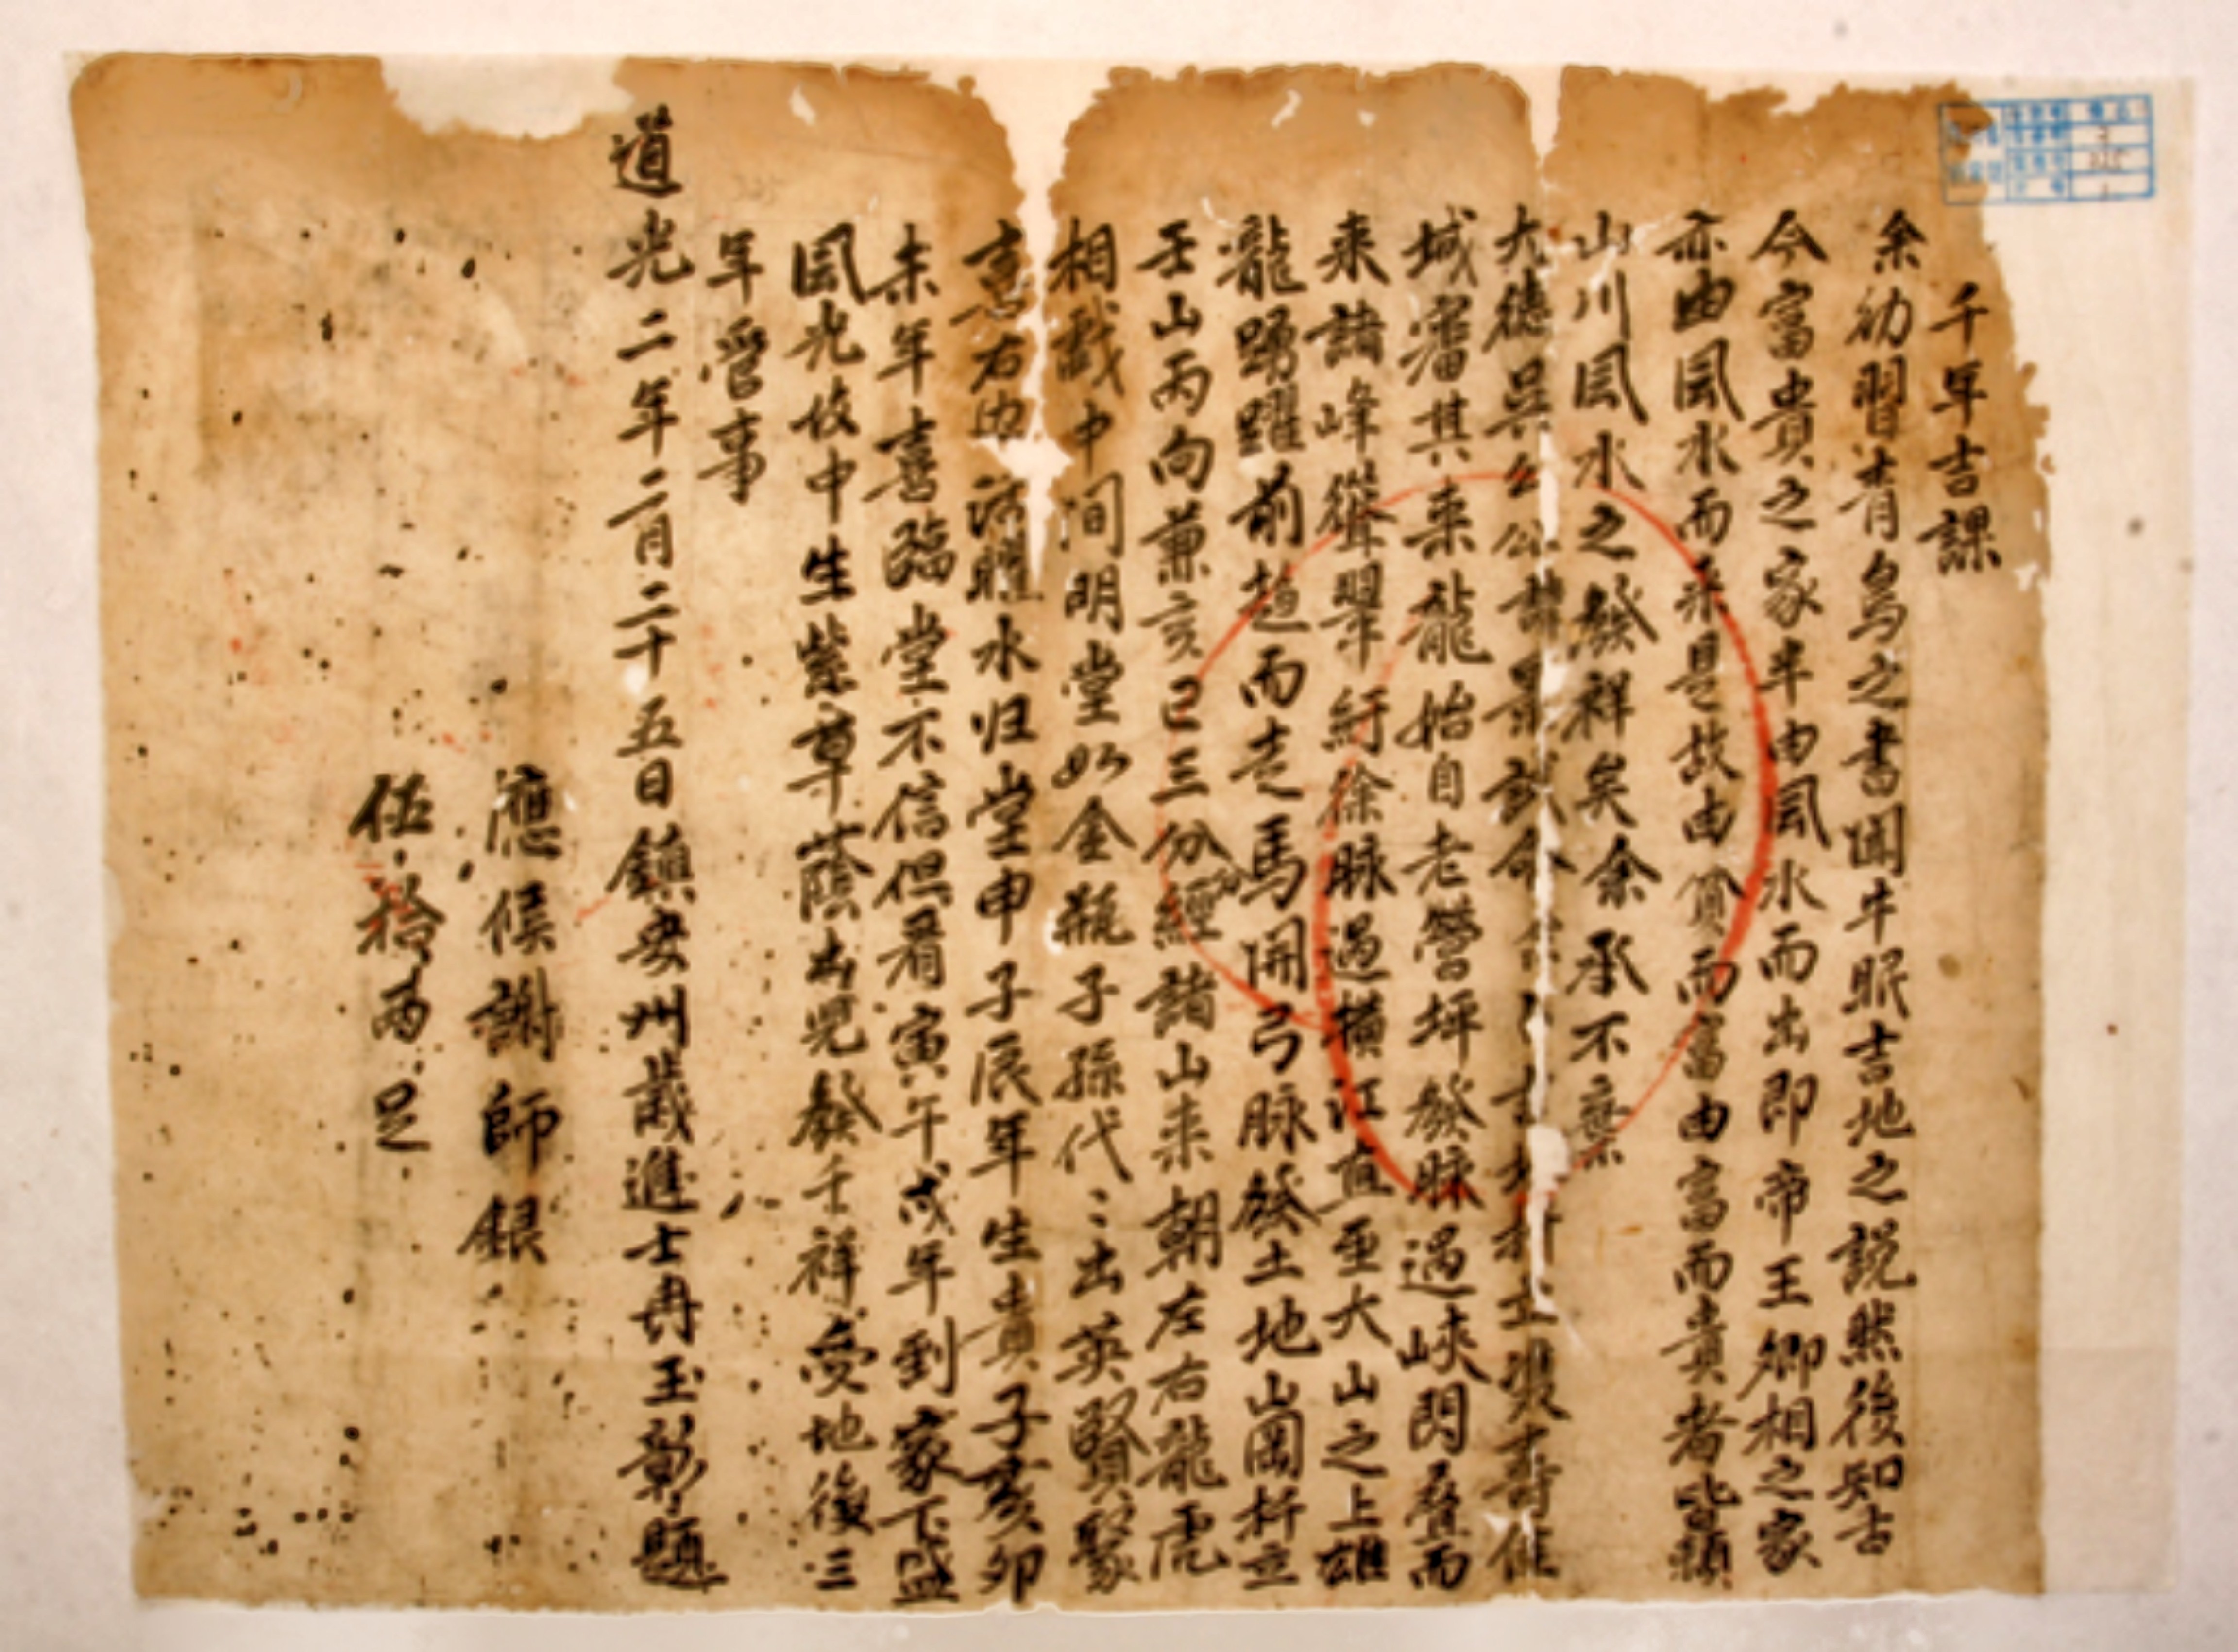 千年吉課
余幼習青烏之書閱牛眠吉地之説然後知古
今富貴之家半由凨水而出即帝王卿相之家
亦由凨水而来是故由貧而富由富而貴者皆頼
山川凨水之發祥矣余承不棄
大德吳公
城寨其来龍始自老營坪發脉過峽閃疊而
来諸峰聳翠紆徐脉過橫江直至大山之上雄
龍踴躍前趋而走馬開弓脉發土地山崗杆立
壬山丙向兼亥巳三分經諸山来朝左右龍虎
相戯中間明堂如金瓶子孫代〻出英賢鬃
水归堂申子辰年生貴子亥卯
未年喜臨堂不信但看寅午戌年到家下盛
凨光伎中生紫尊蔭出児發壬祥受地後三
年管事
道光二年二月二十五日鎮安州歲進士冉玉彰題
應候謝師銀
伍拾両足